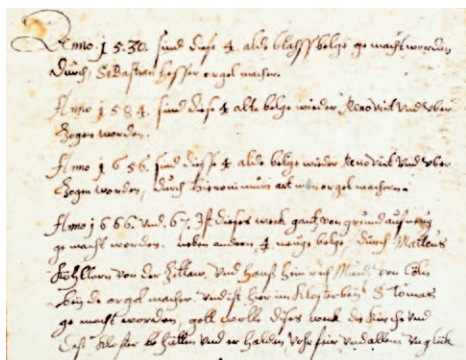 Anno 1530. sind diese 4. alde blassbelge gemacht worden
durch, Sebastian hesser orgel macher.
Anno 1584. sind diese 4 alte belge wieder Renovirt und uber
Zogen worden.
Anno 1656. sind diesse 4. alde belge wieder Renovirt und uber
Zogen worden, durch Hieronimum orgel machern.
Anno 1666. und. 67. Ist dieses werk gantz von grund auf neu
gemacht worden. neben andern 4. neuge belge, durch Mateus
Köhllern von der Zittaw, und Hanss Hein rich Mundt von Cöln
beide orgel macher. undist hier im Kloster bei S Tomas
gemacht worden, gott wolle dises werk die Kirche und
dass Kloster behütten und er halden vohr feir und allem unglük